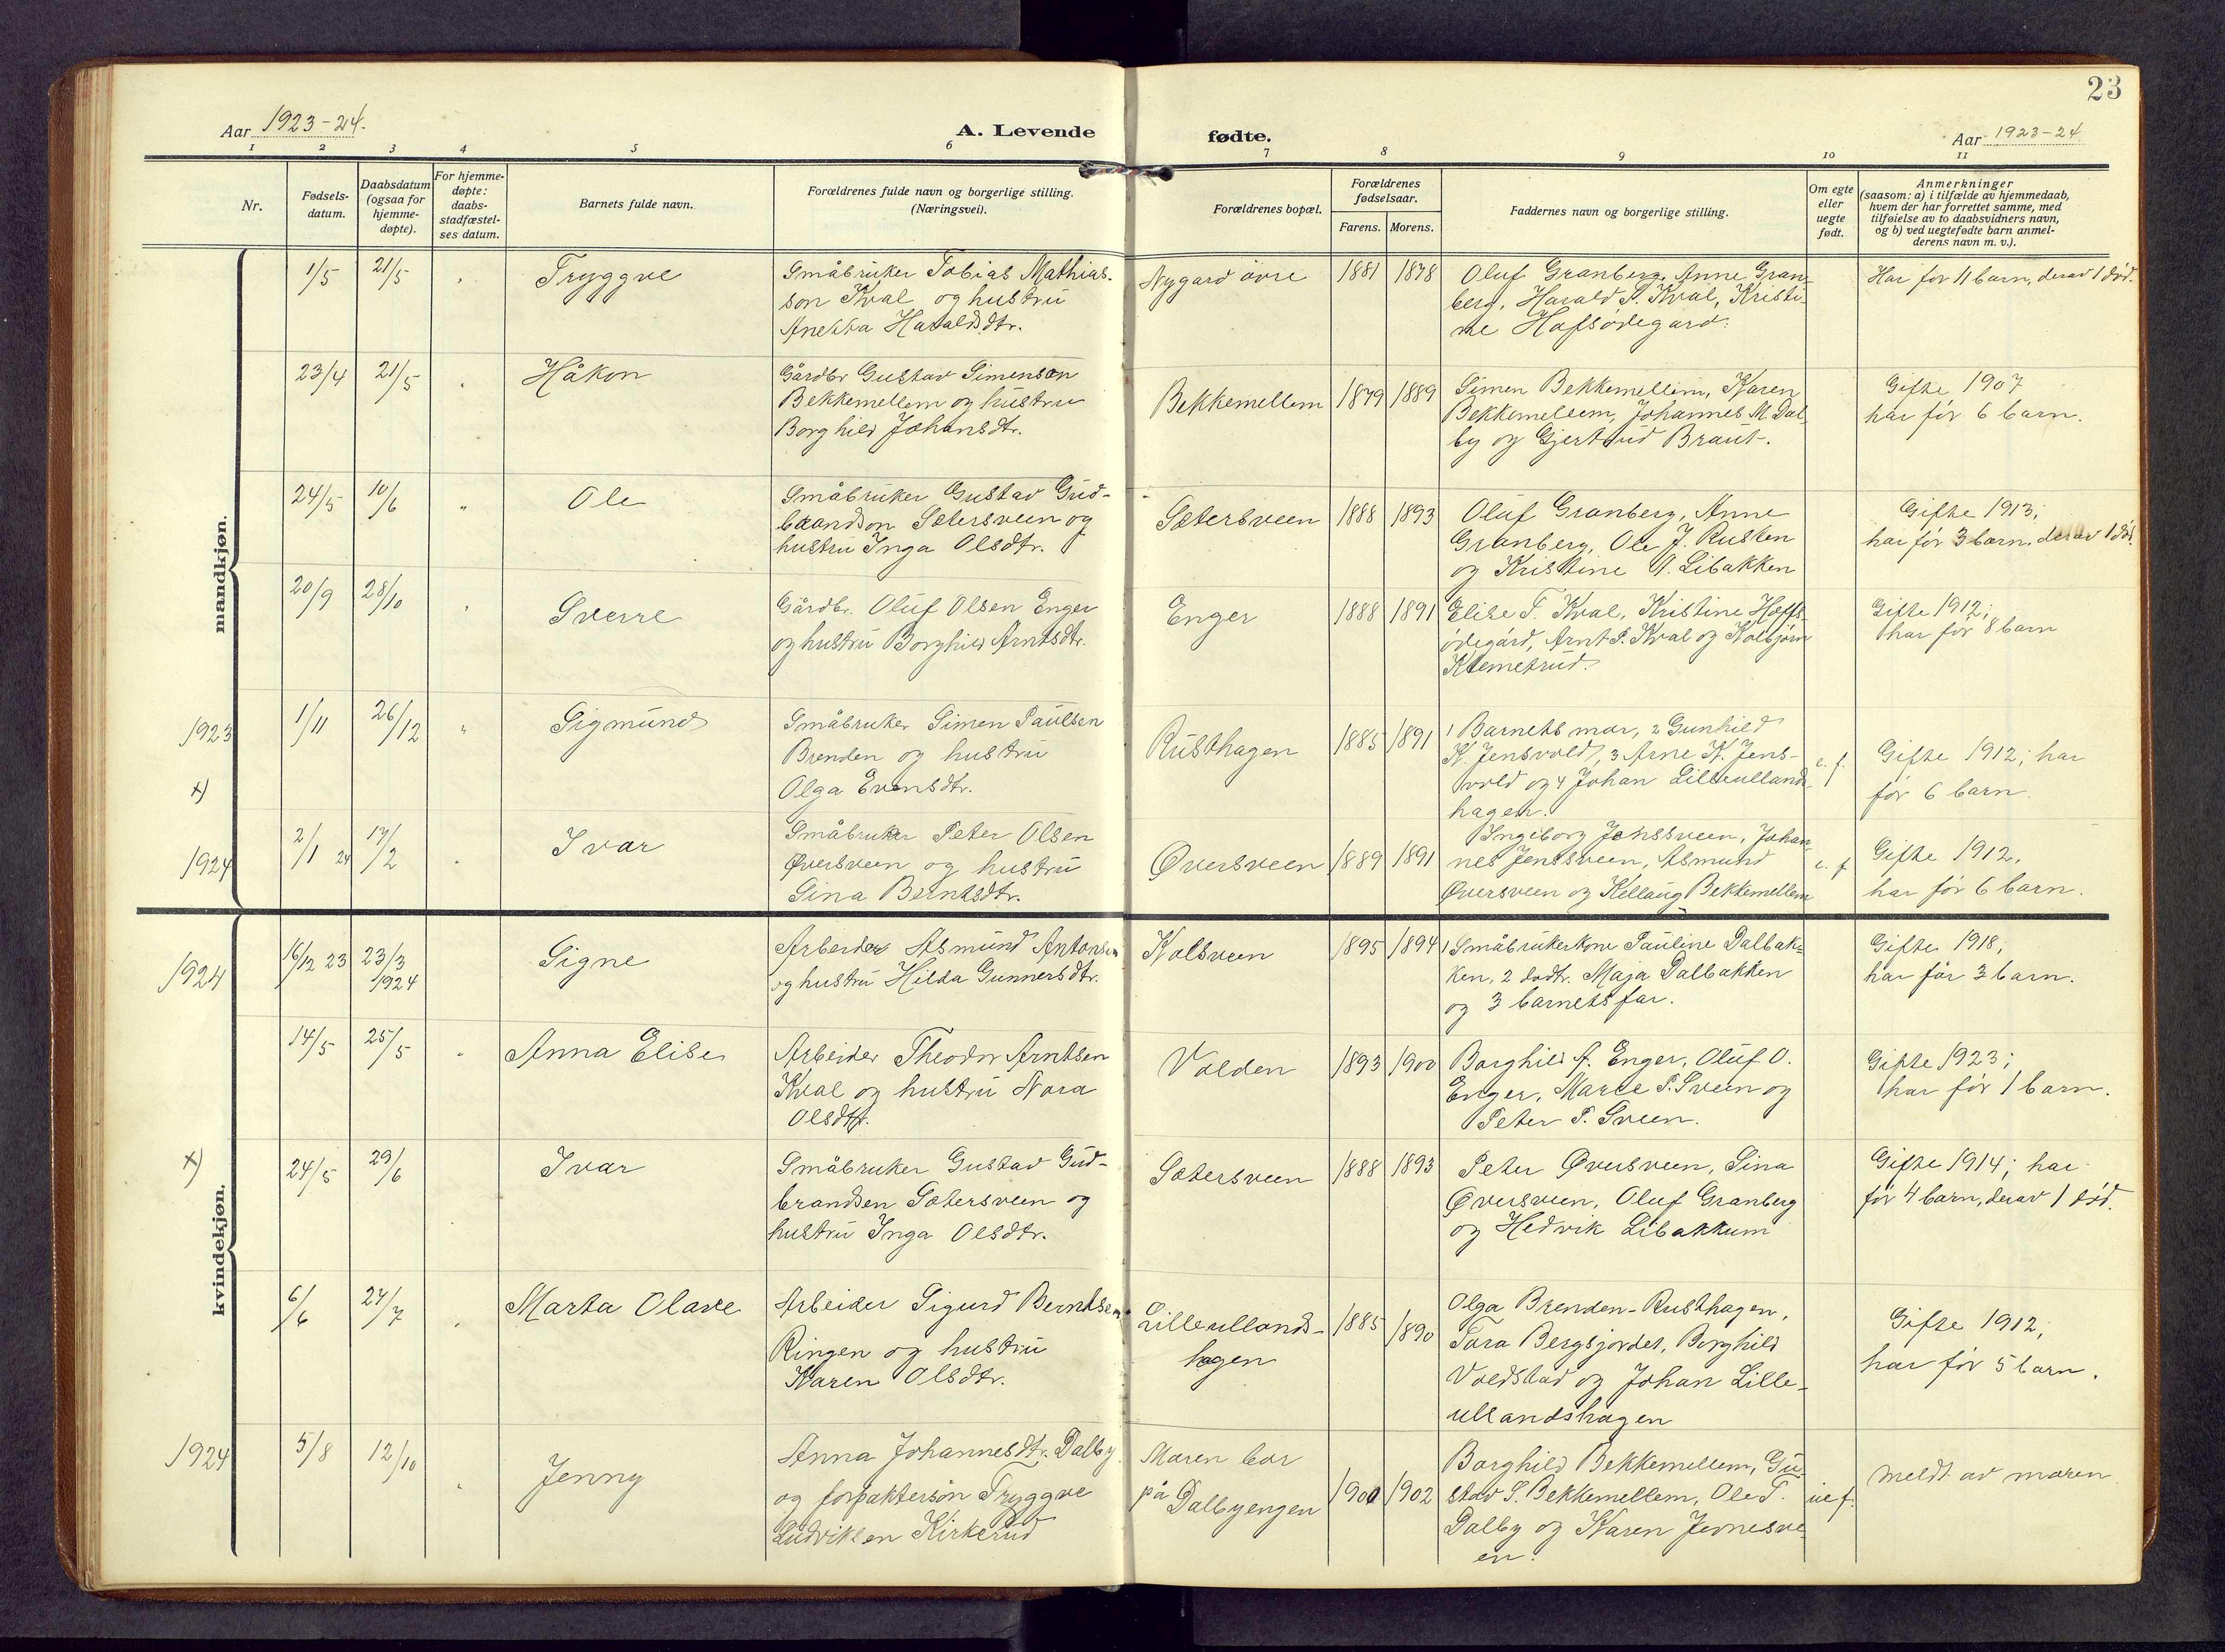 23
Aar 1923-24.
A. Levende
fødte.
Aar 1923-24
1 2 3 4 5 6 7 8 9 10 11
Nr.
Fødsels-
datum.
Daabsdatum
(ogsaa for
hjemme-
døpte).
For hjemme-
døpte:
daabs-
stadfæstel-
ses datum.
Barnets fulde navn.
Forældrenes fulde navn og borgerlige stilling.
(Næringsvei).
Forældrenes bopæl.
Forældrenes
fødselsaar.
Farens. Morens.
Faddernes navn og borgerlige stilling.
Om egte
eller
uegte
født.
Anmerkninger
(saasom: a) i tilfælde av hjemmedaab,
hvem der har forrettet samme, med
tilføielse av to daabsvidners navn,
og b) ved uegtefødte barn anmel-
derens navn m. v.).
mandkjøn.
1/5 21/5 "
Tryggve
Småbruker Tobias Mathias-
son Kval og hustru
Anekka Haraldsdtr.
Nygard övre
1881 1878
Oluf Granberg, Anne Gran-
berg, Harald T. Kval, Kristi-
ne Hafsödegard.
Har för 11 barn, derav 1 död.
23/4 21/5 "
Håkon
Gårdbr Gustav Simenson
Bekkemellem og hustru
Borghild Johansdtr.
Bekkemellem
1879 1889
Simen Bekkemellem, Karen
Bekkemellem, Johannes M. Dal-
by og Gjertrud Braut.
Gifte 1907
har för 6 barn.
24/5 10/6 "
Ole
Småbruker Gustav Gud-
brandson Sætersveen og
hustru Inga Olsdtr.
Sætersveen
1888 1893
Oluf Granberg, Anne
Granberg, Ole J. Rusten
og Kristine A. Libakken
Gifte 1913;
har för 3 barn, derav 1 död.
20/9 28/10 "
Sverre
Gårdbr. Oluf Olsen Enger
og hustru Borghild Arntsdtr.
Enger
1888 1891
Elise T. Kval, Kristine Hoffs-
ödegård, Arnt P. Kval og Kolbjörn
Klemetrud.
Gifte 1912;
har för 8 barn
1923
1/11 26/12 "
Sigmund
Småbruker Simen Paulsen
Brenden og hustru
Olga Evensdtr.
Rusthagen
1885 1891
1 Barnets mor, 2 Gunhild
K. Jensvold, 3 Arne K. Jens-
vold og 4 Johan Lilleullands-
hagen.
e. f.
Gifte 1912; har
för 6 barn.
x)
1924
2/1 24 17/2 "
Ivar
Småbruker Peter Olsen
Øversveen og hustru
Sina Berntsdtr.
Øversveen
1889 1891
Ingeborg Jenssveen, Johan-
nes Jenssveen, Asmund
Øversveen og Kellaug Bekkemellem
e. f.
Gifte 1912,
har för 6 barn.
kvindekjøn.
1924
16/12 23 23/3
1924
Signe
Arbeider Asmund Antonsen
og hustru Hilda Gunnersdtr.
Kolsveen
1895 1894
1 Småbrukerkone Pauline Dalbak-
ken, 2 dodtr. Maja Dalbakken
og 3 barnets far.
Gifte 1918;
har för 3 barn.
14/5 25/5 "
Anna Elise
Arbeider Theodor Arntsen
Kval og hustru Nora
Olsdtr.
Volden
1893 1900
Borghild A. Enger, Oluf O.
Enger, Maree P. Sveen og
Peter P. Sveen.
Gifte 1923;
har för 1 barn.
x)
24/5 29/6 "
Ivar
Småbruker Gustav Gud-
brandsen Sætersveen og
hustru Inga Olsdtr.
Sætersveen
1888 1893
Peter Øversveen, Sina
Øversveen, Oluf Granberg
og Hedvik Libakkum
Gifte 1914; har
för 4 barn, derav 1 död.
6/6 27/7 "
Marta Olave
Arbeider Sigurd Berntsen
Ringen og hustru
Karen Olsdtr.
Lilleullands-
hagen
1885 1890
Olga Brenden-Rusthagen,
Tora Bergsjordet, Borghild
Voldstad og Johan Lille-
ullandshagen
Gifte 1912;
har för 5 barn.
1924
5/8 12/10 "
Jenny
Anna Johannesdtr. Dalby
og forpaktersön Tryggve
Ludviksen Kirkerud
Moren bor
på Dalbyengen
1900 1902
Borghild Bekkemellem, Gu-
stav S. Bekkemellem, Ole T.
Dalby og Karen Jevnesve-
en.
ue f.
Meldt av moren